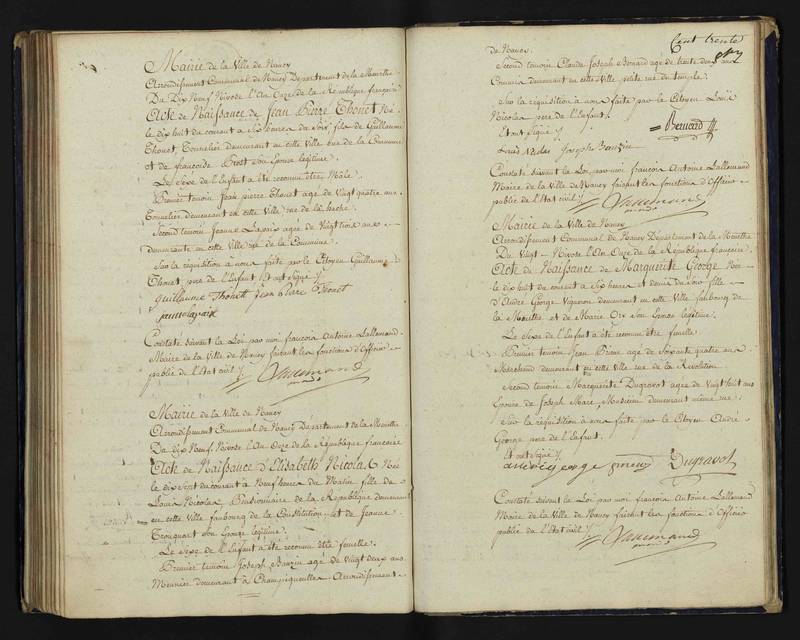 Mairie de la Ville de Nancy
Arrondissement Communal de Nancy Departement de la Meurthe
Du Dix Neuf Nivose l'An Onze de la République française
Acte de Naissance de Jean Pierre Thonet Né
le dix huit du courant a six heures du Soir, fils de Guillaume
Thonet, Tonnelier demeurant en cette Ville rue de la Commune
et de francoise Prost son Epouse légitime.
Le Sexe de l'Enfant a été reconnu être Mâle.
Premier temoin Jean pierre Thonet age de Vingt quatre ans
Tonnelier demeurant en cette Ville rue de la hache.
Second temoin Jeanne agée de Vingt trois ans
demeurante en cette Ville rue de la Commune.
Sur la réquisition à nous faite par le Citoyen Guillaume
Thonet pere de l'Enfant Et ont Signé
guillaume Thonett Jean Pierre Thonet
Constaté suivant la Loi par moi françois Antoine Lallemand
Maire de la Ville de Nancy faisant les fonctions d'Officier
public de l'Etat civil
Lallemand
Mairie de la Ville de Nancy
Arrondissement Communal de Nancy Departement de la Meurthe
Du Dix Neuf Nivose l'An Onze de la République francaise
Acte de Naissance d'Elisabeth Nicolas Née
le dix sept du courant à Neuf heures du Matin fille de
Louis Nicolas Pensionnaire de la République demeurant
en cette Ville faubourg de la Constitution et de Jeanne
Trouquart son Epouse legitime.
Le Sexe de l'Enfant a été reconnu être femelle.
Premier temoin Joseph Bauzin agé de Vingt deux ans
Meunier demeurant à Champigneulles Arrondissement
Cent trente
de Nancy.
Second temoin Claude Joseph Bernard agé de trente deux ans
Commis demeurant en cette Ville petite rue du temple.
Sur la réquisition à nous faite par le Citoyen Louis
Nicolas pere de l'Enfant.
Et ont Signé
Bernard
Louis Nicolas Joseph Bauzin
Constaté suivant la Loi, par moi françois Antoine Lallemand
Maire de la Ville de Nancy faisant les fonctions d'Officier
public de l'Etat civil
Lallemand
Mairie de la Ville de Nancy
Arrondissement Communal de Nancy Département de la Meurthe
Du Vingt Nivose l'An Onze de la République francaise.
Acte de Naissance de Marguerite George Née
le dix huit du courant à Sept heures et demie du soir fille
d'André George Vigneron demeurant en cette Ville faubourg de
la Meurthe et de Marie Orv son Epouse legitime.
Le Sexe de l'Enfant a été reconnu être femelle
Premier temoin Jean age de Soixante quatre ans
demeurant en cette Ville rue de la Révolution
Second temoin Marguerite Dugravot agée de Vingt huit ans
Epouse de Joseph Marc, Musicien demeurant même rue.
Sur la réquisition à nous faite par le Citoyen André
George pere de l'Enfant.
Et ont Signé
andré george Dugravot
Constaté suivant la Loi par moi françois Antoine Lallemand
Maire de la Ville de Nancy faisant les fonctions d'Officier
public de l'Etat civil
Lallemand